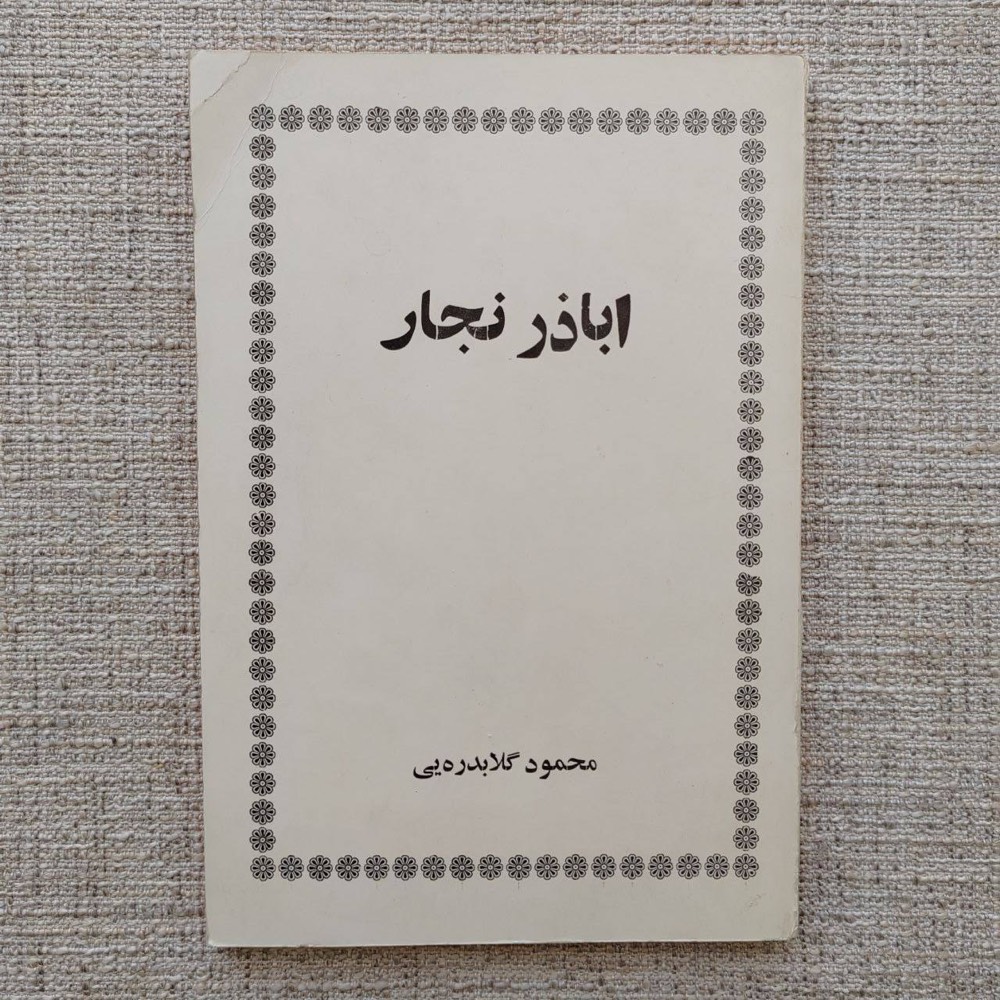 اباذر نجار
محمود گلابدره‌یی